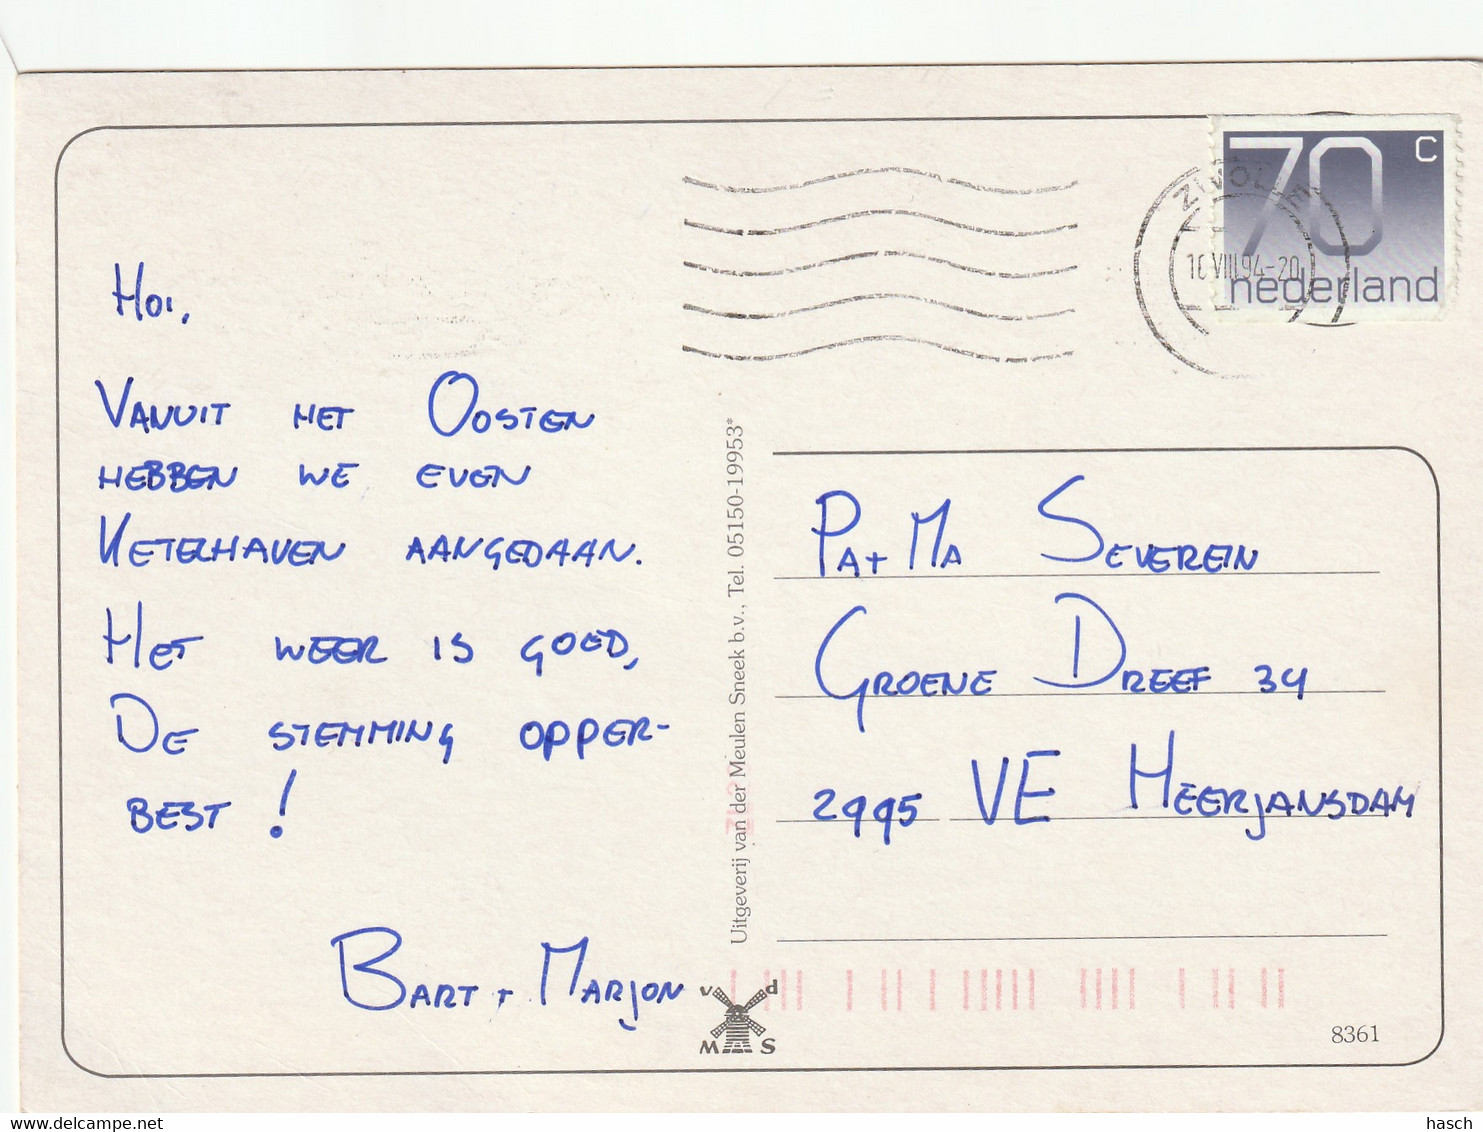 70 c
nederland
ZWOLLE
16 VIII 94-20
HOI,
VANUIT HET OOSTEN
HEBBEN WE EVEN
KETELHAVEN AANGEDAAN.
HET WEER IS GOED,
DE STEMMING OPPER-
BEST!
BART + MARJON
Uitgeverij van der Meulen Sneek b.v., Tel. 05150-19953*
PA + MA SEVEREIN
GROENE DREEF 34
2995 VE HEERJANSDAM
v d
M S
8361
hasch